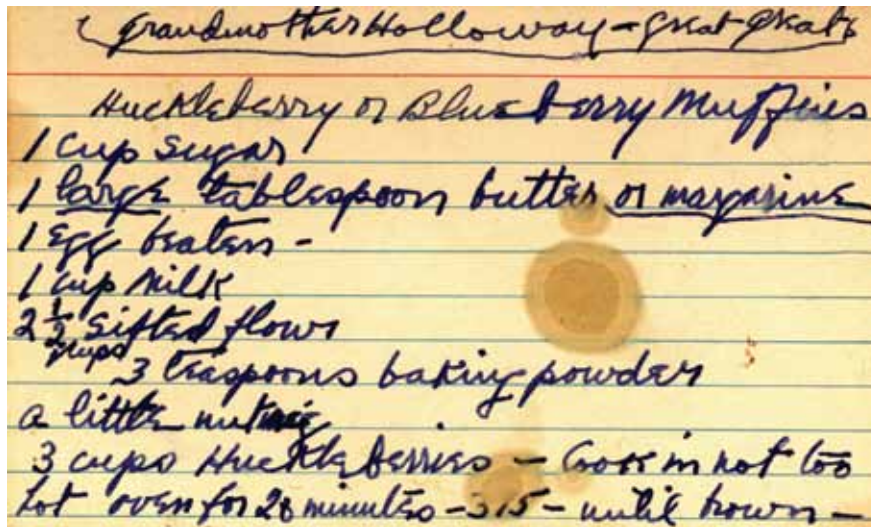 Grandmother Holloway - great great
Huckleberry or Blueberry Muffins
1 cup sugar
1 large tablespoon butter or margarine
1 egg beaten -
1 cup milk
2 1/2 sifted flour
cups
3 teaspoons baking powder
a little nutmeg
3 cups Huckleberries - Cook in not too
hot oven for 20 minutes - 375 - until brown -